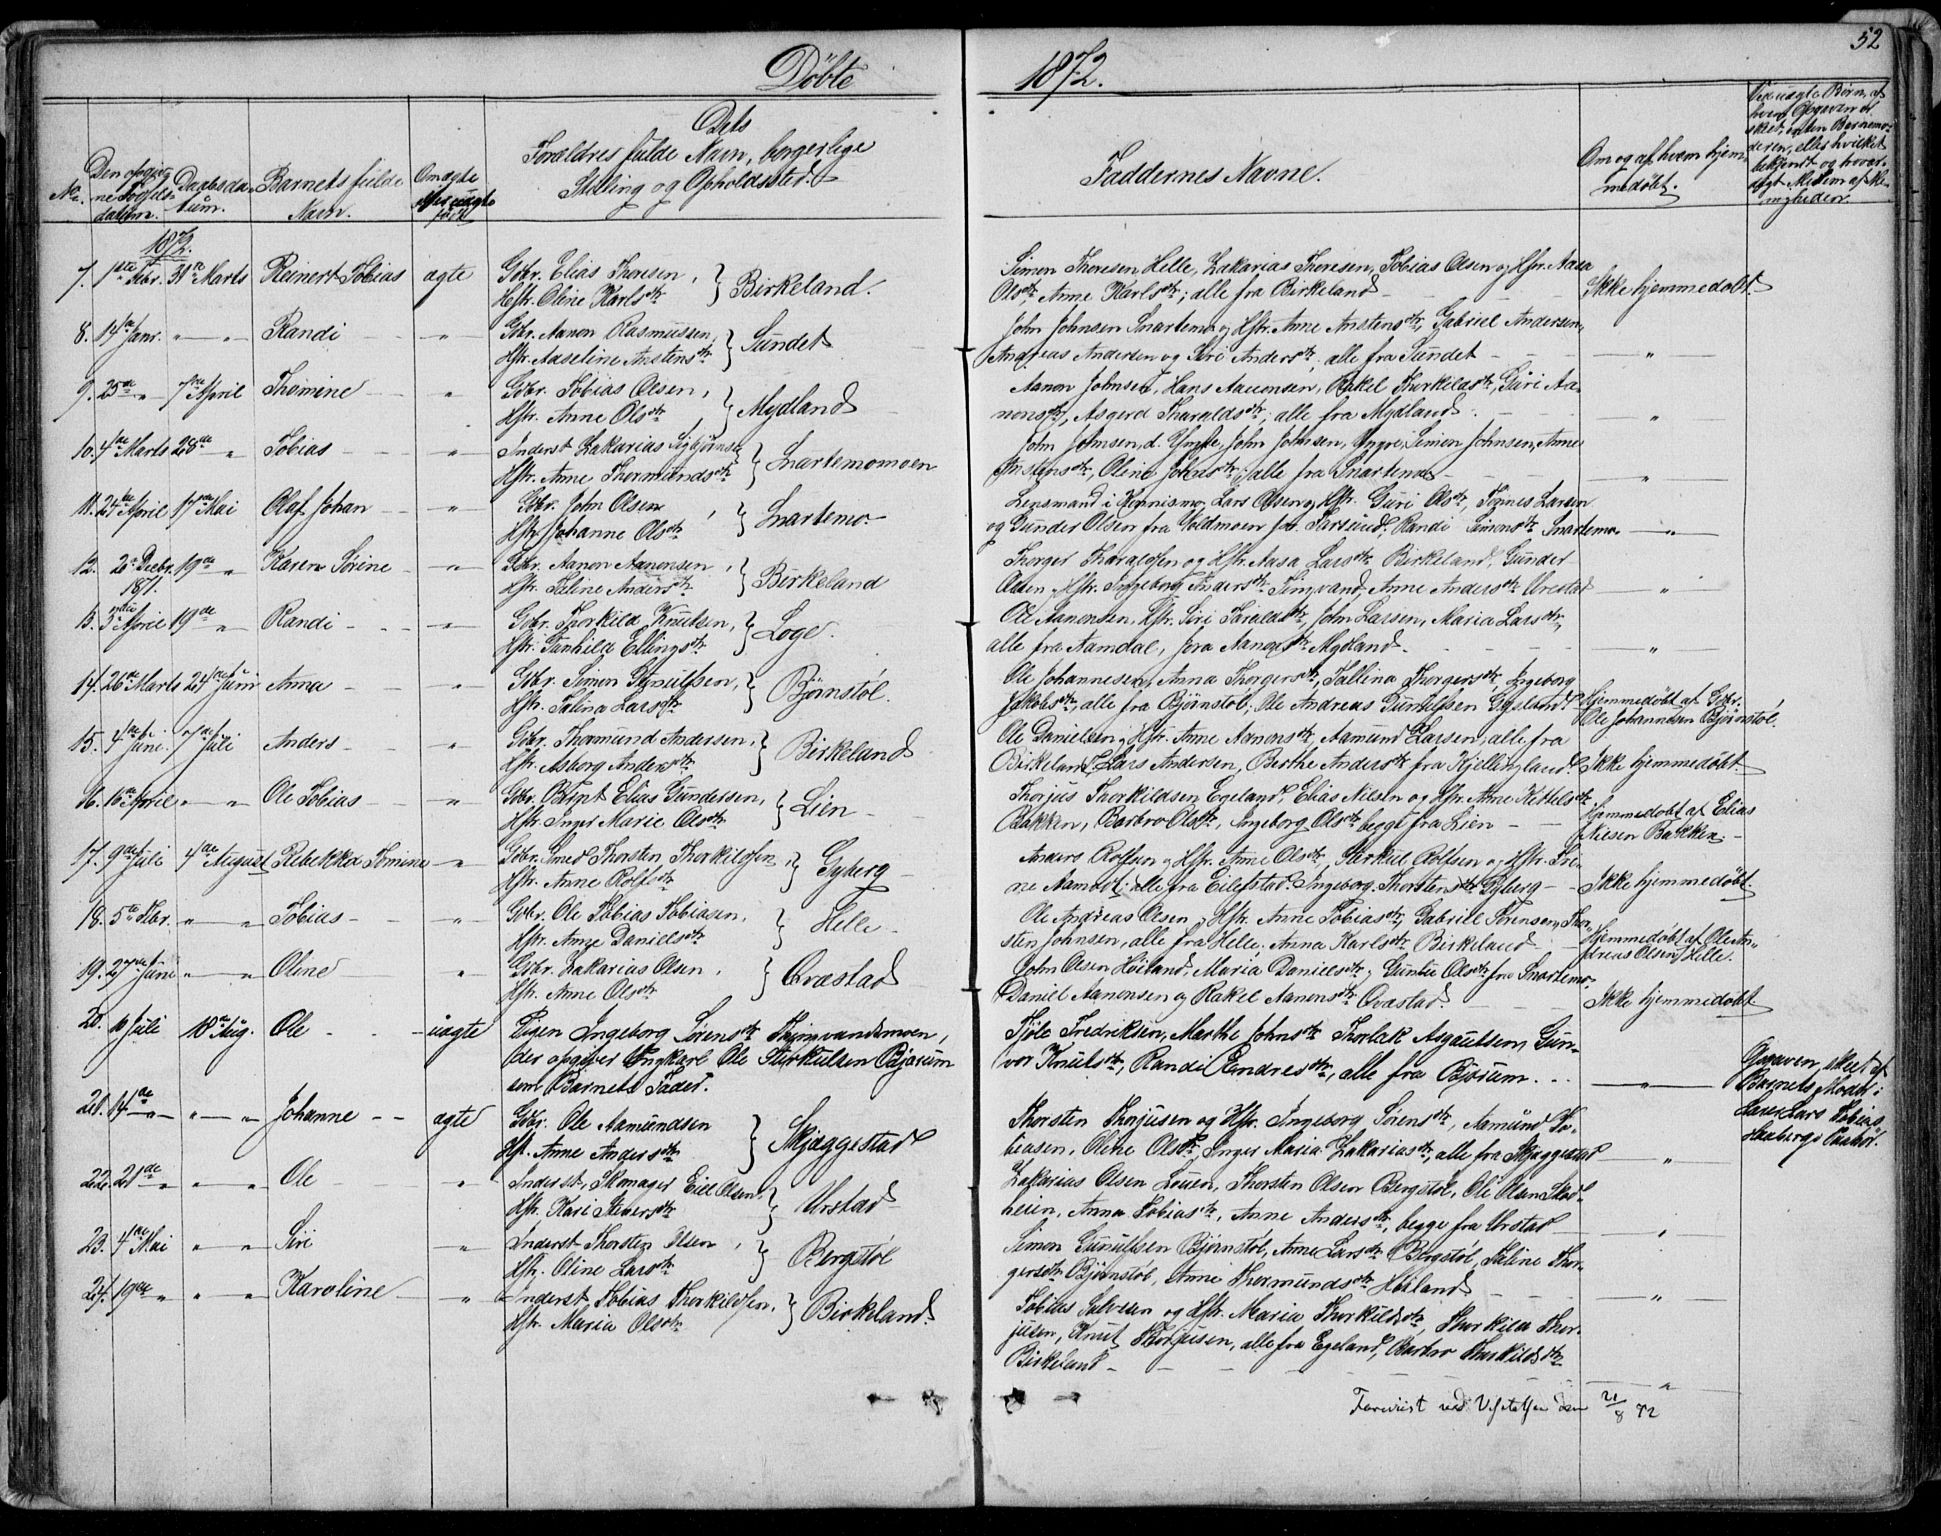 52
Døbte 1872.
No.
Den opgiv-
ne Fødsels-
datum.
Daabsda-
tum.
Barnets fulde
Navn.
Om ægte
eller uægte
født
Dets
Forældres fulde Navn, borgerlige
Stilling og Opholdssted.
Faddernes Navne.
Om og af hvem hjem-
medøbt.
Ved uægte Børn, af
hvem Opgaven er
skeet, enten Barnemo-
deren, eller hvilket
bekjendt og troværdigt Medlem af Me-
nigheden.
1872.
7. 1ste Febr. 31te Marts Reinert Tobias ægte Gbr. Elias Thoresen, } Birkeland.
Hstr. Oline Karlsdtr
Simon Thoresen Helle, Zakarias Thoresen, Tobias Olsen og Hstr. Aasa
Olsdtr Anne Karlsdtr; alle fra Birkeland - Ikke hjemmedøbt.
8. 14de Janr. " " Randi - " Gbr. Aanon Rasmussen, } Sundet
Hstr. Aaseline Anstensdtr
John Johnsen Snartemo og Hstr. Anne Anstensdtr, Gabriel Andersen,
Andreas Andersen og Siri Andersdtr, alle fra Sundet - "
9. 25de " 7de April Thomine - " Gbr. Tobias Olsen, } Mydland
Hstr. Anne Olsdtr
Aanon Johnsen, Hans Aanonsen, Rakel Thorkildsdtr, Guri Aa-
nonsdtr, Asgerd Tharaldsdtr; alle fra Mydland. "
10. 4de Marts 28de " Tobias - " Inderst Zakarias Sigbjørnsen } Snartemomoen
Hstr. Anne Thormundsdtr
John Johnsen, d. Yngre, John Johnsen, Yngre, Simon Johnsen, Anne
Anstensdtr, Oline Johnsdtr; alle fra Snartemo - "
11. 24de April 17de Mai Olaf Johan - " Gbr. John Olsen, } Snartemo.
Hstr. Johanne Olsdtr
Lensmand i Konnismo, Lars Olsen og Hstr. Guri Olsdtr, Tønnes Larsen
og Gunder Olsen fra Voldmoen Randi Simonsdtr Snartemo. "
12. 20 Decbr. 19de " Karen Sirine - " Gbr. Aanon Aanonsen, } Birkeland
1871. Hstr. Saline Andersdtr
Thorger Tharaldsen og Hstr. Aasa Larsdtr Birkeland, Gunder
Olsen, Hstr. Ingeborg Andersdtr Tingvand, Anne Andersdtr Urestad "
13. 3die April 19de " Randi - " Gbr. Thorkild Knutsen, } Løge.
Hstr. Gunhild Ellingsdtr
Ole Aanonsen, Hstr. Siri Taraldsdtr, John Larsen, Maria Larsdtr,
alle fra Aamdal, Jora Aanonsdtr Mydland. "
14. 26de Marts 24de Juni Anna - " Gbr. Simon Gunulfsen, } Bjørnstøl.
Hstr. Salina Larsdtr
Ole Johannesen, Anna Thorgersdtr, Sallina Thorgersdtr, Ingeborg
Jakobsdtr, alle fra Bjørnstøl; Ole Andreas Gunulfsen Gysland. Hjemmedøbt af Gbr.
Ole Johannesen Bjørnstøl.
15. 4de Juni 7de Juli Anders - " Gbr. Thormund Andersen, } Birkeland
Hstr. Asborg Andersdtr
Ole Danielsen, Hstr. Anne Aanonsdtr, Aamund Larsen, alle fra
Birkeland, Lars Andersen, Berthe Andersdtr fra Kjellingland. Ikke hjemmedøbt.
16. 16de April " " Ole Tobias - " Gbr. Elias Gundersen, } Lien -
Hstr. Inger Marie Olsdtr
Thorjus Thorkildsen Egeland, Elias Nilsen og Hstr. Anne Kittelsdtr
Bakken, Barbro Olsdtr, Ingeborg Olsdtr begge fra Lien - Hjemmedøbt af Elias
Nilsen Bakken. -
17. 9de Juli 4de August Rebekka Tomine " Gbr. Smed Thorsten Thorkildsen, } Gyberg -
Hstr. Anne Rolfsdtr
Anders Rolfsen og Hstr. Anne Olsdtr, Stirkul Rolfsen og Hstr. Tri-
ne alle fra Eilefstad. Ingeborg Thorstensdtr Gyberg - Ikke hjemmedøbt.
18. 5te Febr. " " Tobias - " Gbr. Ole Tobias Tobiasen, } Helle -
Hstr. Anne Danielsdtr
Ole Andreas Olsen, Hstr. Anne Tobiasdtr, Gabriel Sørensen, Thor-
sten Johnsen, alle fra Helle. Anna Karlsdtr Birkeland Hjemmedøbt af Ole An-
dreas Olsen Helle.
19. 27de Juni " " Oline " Gbr. Zakarias Olsen, } Ovrestad
Hstr. Anne Olsdtr
John Olsen Høiland, Maria Danielsdtr, Guntie Olsdtr fra Snartemo.
Daniel Aanonsen og Rakel Aanonsdtr Ovrestad Ikke hjemmedøbt
20. 10 Juli 18de Aug. Ole - uægte Pigen Ingeborg Sørensdtr Thingvandsmoen,
der opgiver Ungkarl Ole Stirkulsen Bjærum
som Barnets Fader.
Tjøle Fredriksen, Marthe Johnsdtr Thorlak Asgautsen, Gun-
vor Knutsdtr, Randi Endresdtr, alle fra Bjærum. . . " Opgaven skeet af
Barnets Moder i
Lærer Lars Tobias
Haabergs Paahør.
21. 14de " " " Johanne - ægte Gbr. Ole Aamundsen } Skjæggestad
Hst. Anne Andersdtr
Thorsten Thorjusen og Hstr. Ingeborg Sørensdtr, Aamund To-
biasen, Oline Olsdtr, Inger Maria Zakariasdtr, alle fra Skjæggestad "
22. 21de " " " Ole - " Inderst, Skomager Eiel Olsen, } Urstad
Hstr. Kari Siversdtr
Zakarias Olsen Louen, Thorsten Olsen Bergstøl, Ole Olsen Skod-
heien, Anna Tobiasdtr, Anne Andersdtr, begge fra Urstad "
23. 4de Mai " " Siri " Inderst Thorsten Olsen, } Bergstøl
Hstr. Oline Larsdtr
Simon Gunulfsen Bjørnstøl, Anne Larsdtr Bergstøl, Saline Thor-
gersdtr Bjørnstøl, Anne Thormundsdtr Høiland "
24. 19de " " " Karoline - " Inderst Tobias Thorkildsen, } Birkeland.
Hstr. Maria Olsdtr
Tobias Salvesen og Hstr. Maria Thorkildsdtr, Thorkild Thor-
jusen, Knut Thorjusen, alle fra Egeland, Barbro Thorkildsdtr
Birkeland - "
Foreviist ved Visitatsen den 21/8 72